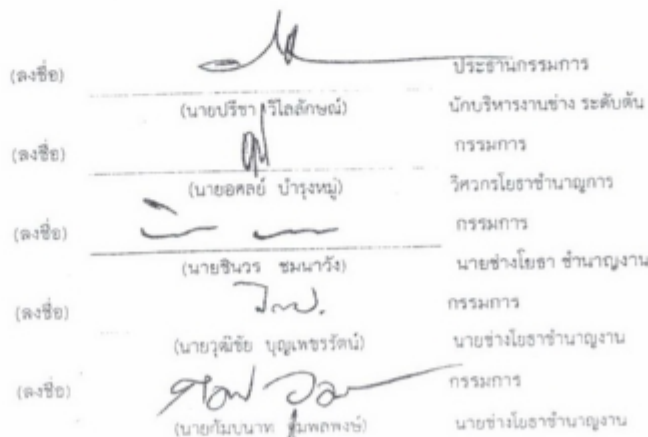 (ลงชื่อ) ประธานกรรมการ
(นายปรีชา วิไลลักษณ์) นักบริหารงานช่าง ระดับต้น
(ลงชื่อ) กรรมการ
(นายอศลย์ บำรุงหมู่) วิศวกรโยธาชำนาญการ
(ลงชื่อ) กรรมการ
(นายชินวร ชมนาวัง) นายช่างโยธา ชำนาญงาน
(ลงชื่อ) กรรมการ
(นายวุฒิชัย บุญเพชรรัตน์) นายช่างโยธาชำนาญงาน
(ลงชื่อ) กรรมการ
(นายกัมบนาท ชุมพลพงษ์) นายช่างโยธาชำนาญงาน